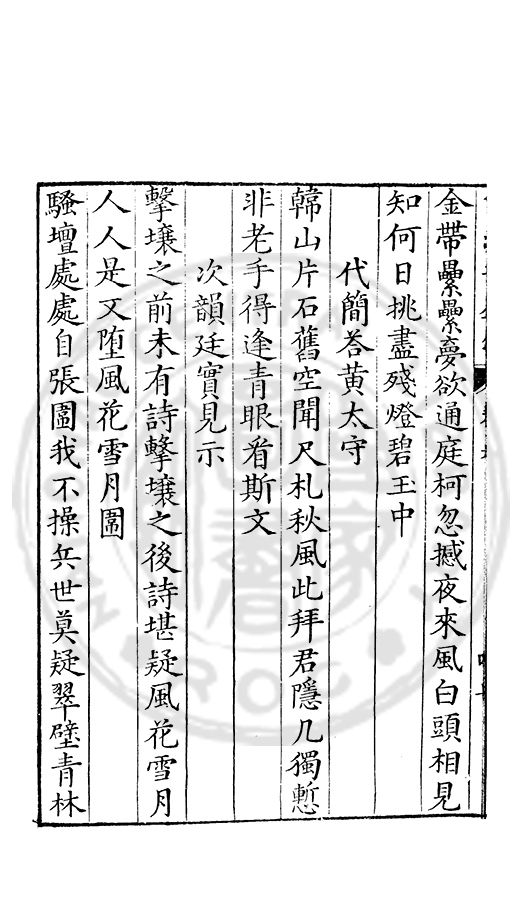 金帶纍纍夢欲通庭柯忽撼夜來風白頭相見
知何日挑盡殘燈碧玉中
代簡答黃太守
韓山片石舊空聞尺札秋風此拜君隱几獨慙
非老手得逢青眼看斯文
次韻廷實見示
擊壤之前未有詩擊壤之後詩堪疑風花雪月
人人是又墮風花雪月圍
騷壇處處自張圍我不操兵世莫疑翠壁青林